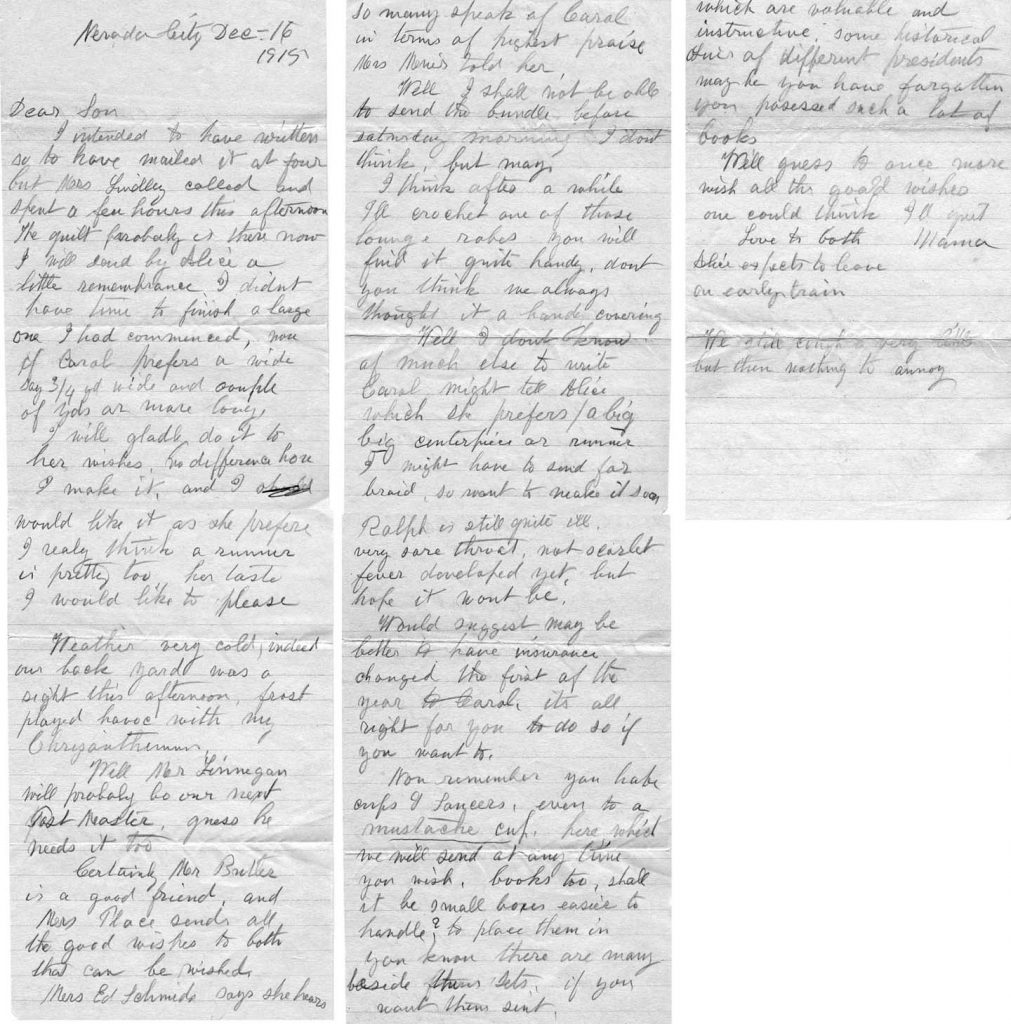 Nevada City Dec-16
1915
Dear Son
I intended to have written
so to have mailed it at four
but Mrs Lindley called and
spent a few hours this afternoon
The quilt probably is there now
I will send by Alice a
little remembrance I didnt
have time to finish a large
one I had commenced, now
if Carol prefers a wide
say 3/4 yd wide and couple
of yds or more long,
I will gladly do it to
her wishes, no difference how
I make it, and I
would like it as she prefers
I realy think a runner
is pretty too, her taste
I would like to please
Weather very cold, indeed
our back yard was a
sight this afternoon, frost
played havoc with my
Chrysanthemum.
Well Mr Finnegan
will probaly be our next
Post Master, guess he
needs it too
Certainly Mr Butler
is a good friend, and
Mrs Place sends all
the good wishes to both
that can be wished,
Mrs Ed Schmidt says she hears
so many speak of Carol
in terms of highest praise
Mrs told her,
Well I shall not be able
to send the bundle, before
saturday morning I dont
think, but may,
I think after a while
I'll crochet one of those
lounge robes you will
find it quite handy, dont
you think we always
thought it a handi covering
Well I dont know
of much else to write
Carol might tell Alice
which she prefers / a big
big centerpiece or runner
I might have to send for
braid, so want to make it soon,
Ralph is still quite ill,
very sore throat, not scarlet
fever developed yet, but
hope it wont be.
Would suggest may be
better to have insurance
changed the first of the
year to Carol, its all
right for you to do so if
you want to.
Now remember you have
cups & saucers, even to a
mustache cup, here which
we will send at any time
you wish, books too, shall
it be small boxes easier to
handle? to place them in
you know there are many
beside them sets, if you
want them sent,
which are valuable and
instructive, some historical
of different presidents
may be you have forgotten
you posessed such a lot of
books
Well guess to once more
wish all the good wishes
one could think I'll quit
Love to both Mama
Alice expects to leave
on early train
We still cough a very little
but then nothing to annoy